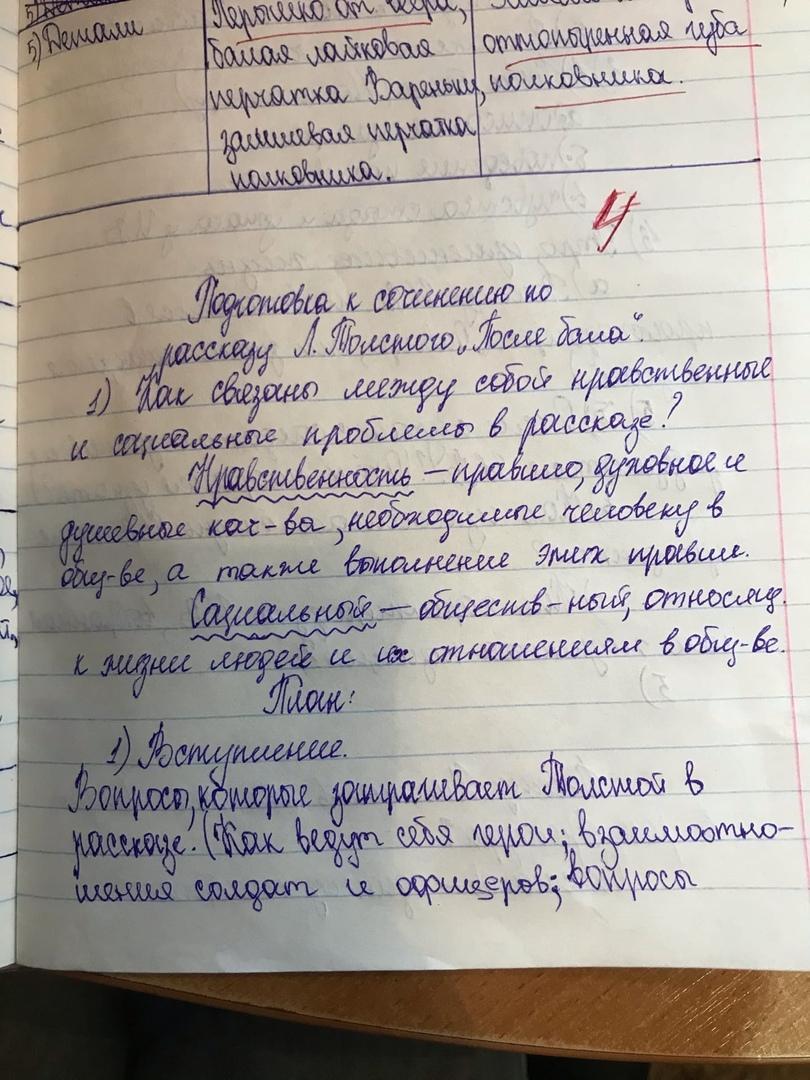 5) Детали
Пёрышко от веера,
белая лайковая
перчатка Вареньки,
замшевая перчатка
полковника.
оттопыренная губа
полковника.
4
Подготовка к сочинению по
рассказу Л. Толстого „После бала“.
1) Как связаны между собой нравственные
и социальные проблемы в рассказе?
Нравственность – правило, духовное и
душевные кач-ва, необходимые человеку в
общ-ве, а также выполнение этих правил.
Социальный – обществ-ный, относящ.
к жизни людей и их отношениям в общ-ве.
План:
1) Вступление.
Вопросы, которые затрагивает Толстой в
рассказе. (Как ведут себя герои; взаимоотно-
шения солдат и офицеров; вопросы